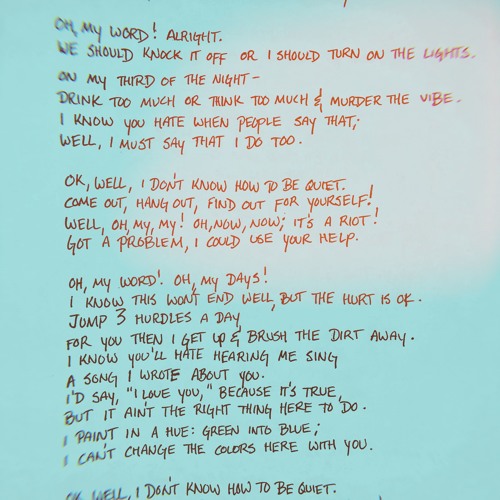 OH, MY WORD! ALRIGHT.
WE SHOULD KNOCK IT OFF OR I SHOULD TURN ON THE LIGHTS.
ON MY THIRD OF THE NIGHT-
DRINK TOO MUCH OR THINK TOO MUCH & MURDER THE VIBE.
I KNOW YOU HATE WHEN PEOPLE SAY THAT;
WELL, I MUST SAY THAT I DO TOO.
OK, WELL, I DON'T KNOW HOW TO BE QUIET.
COME OUT, HANG OUT, FIND OUT FOR YOURSELF!
WELL, OH, MY, MY! OH, NOW, NOW; IT'S A RIOT!
GOT A PROBLEM, I COULD USE YOUR HELP.
OH, MY WORD! OH, MY DAYS!
I KNOW THIS WON'T END WELL, BUT THE HURT IS OK.
JUMP 3 HURDLES A DAY
FOR YOU THEN I GET UP & BRUSH THE DIRT AWAY.
I KNOW YOU'LL HATE HEARING ME SING
A SONG I WROTE ABOUT YOU.
I'D SAY, "I LOVE YOU," BECAUSE IT'S TRUE,
BUT IT AIN'T THE RIGHT THING HERE TO DO.
I PAINT IN A HUE: GREEN INTO BLUE;
I CAN'T CHANGE THE COLORS HERE WITH YOU.
OK, WELL, I DON'T KNOW HOW TO BE QUIET.